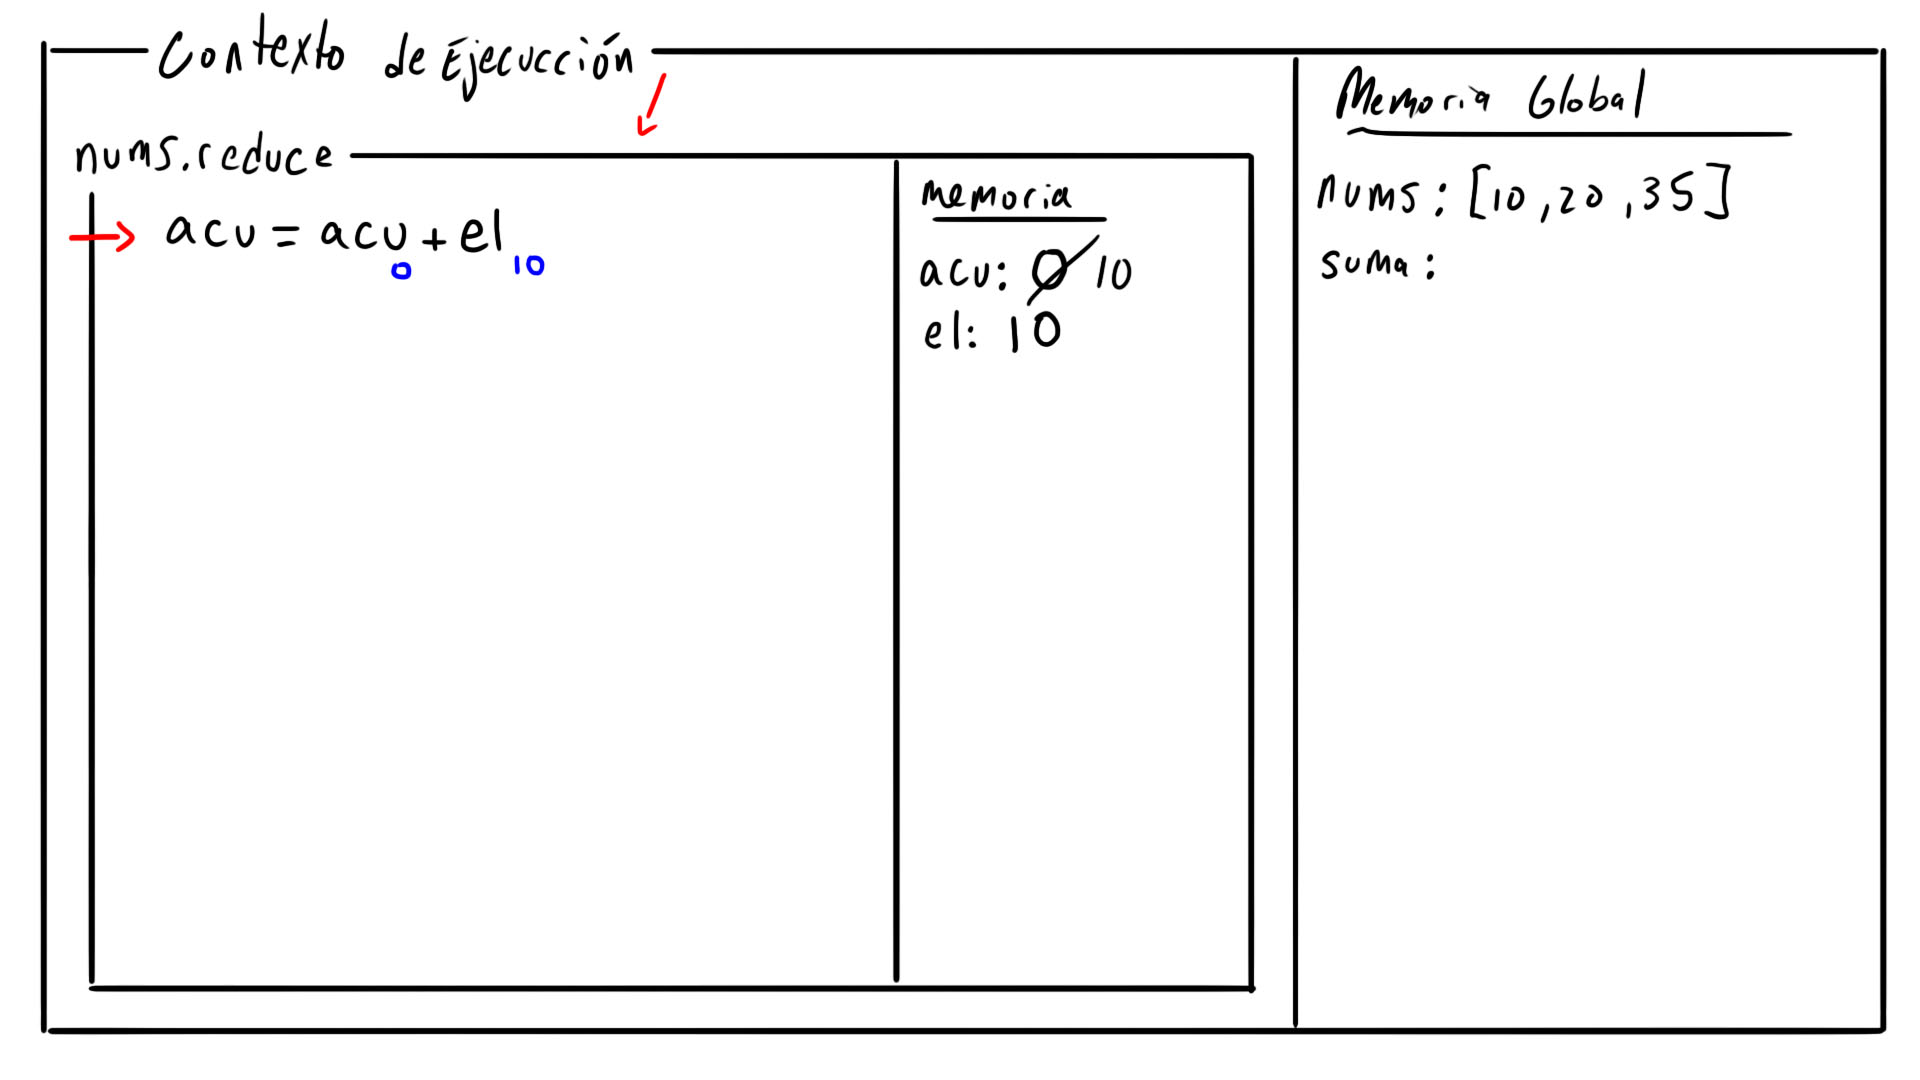 Contexto de Ejecucción
nums.reduce
acu = acu + el
0 10
memoria
acu: 0 10
el: 10
Memoria Global
nums: [10,20,35]
suma: